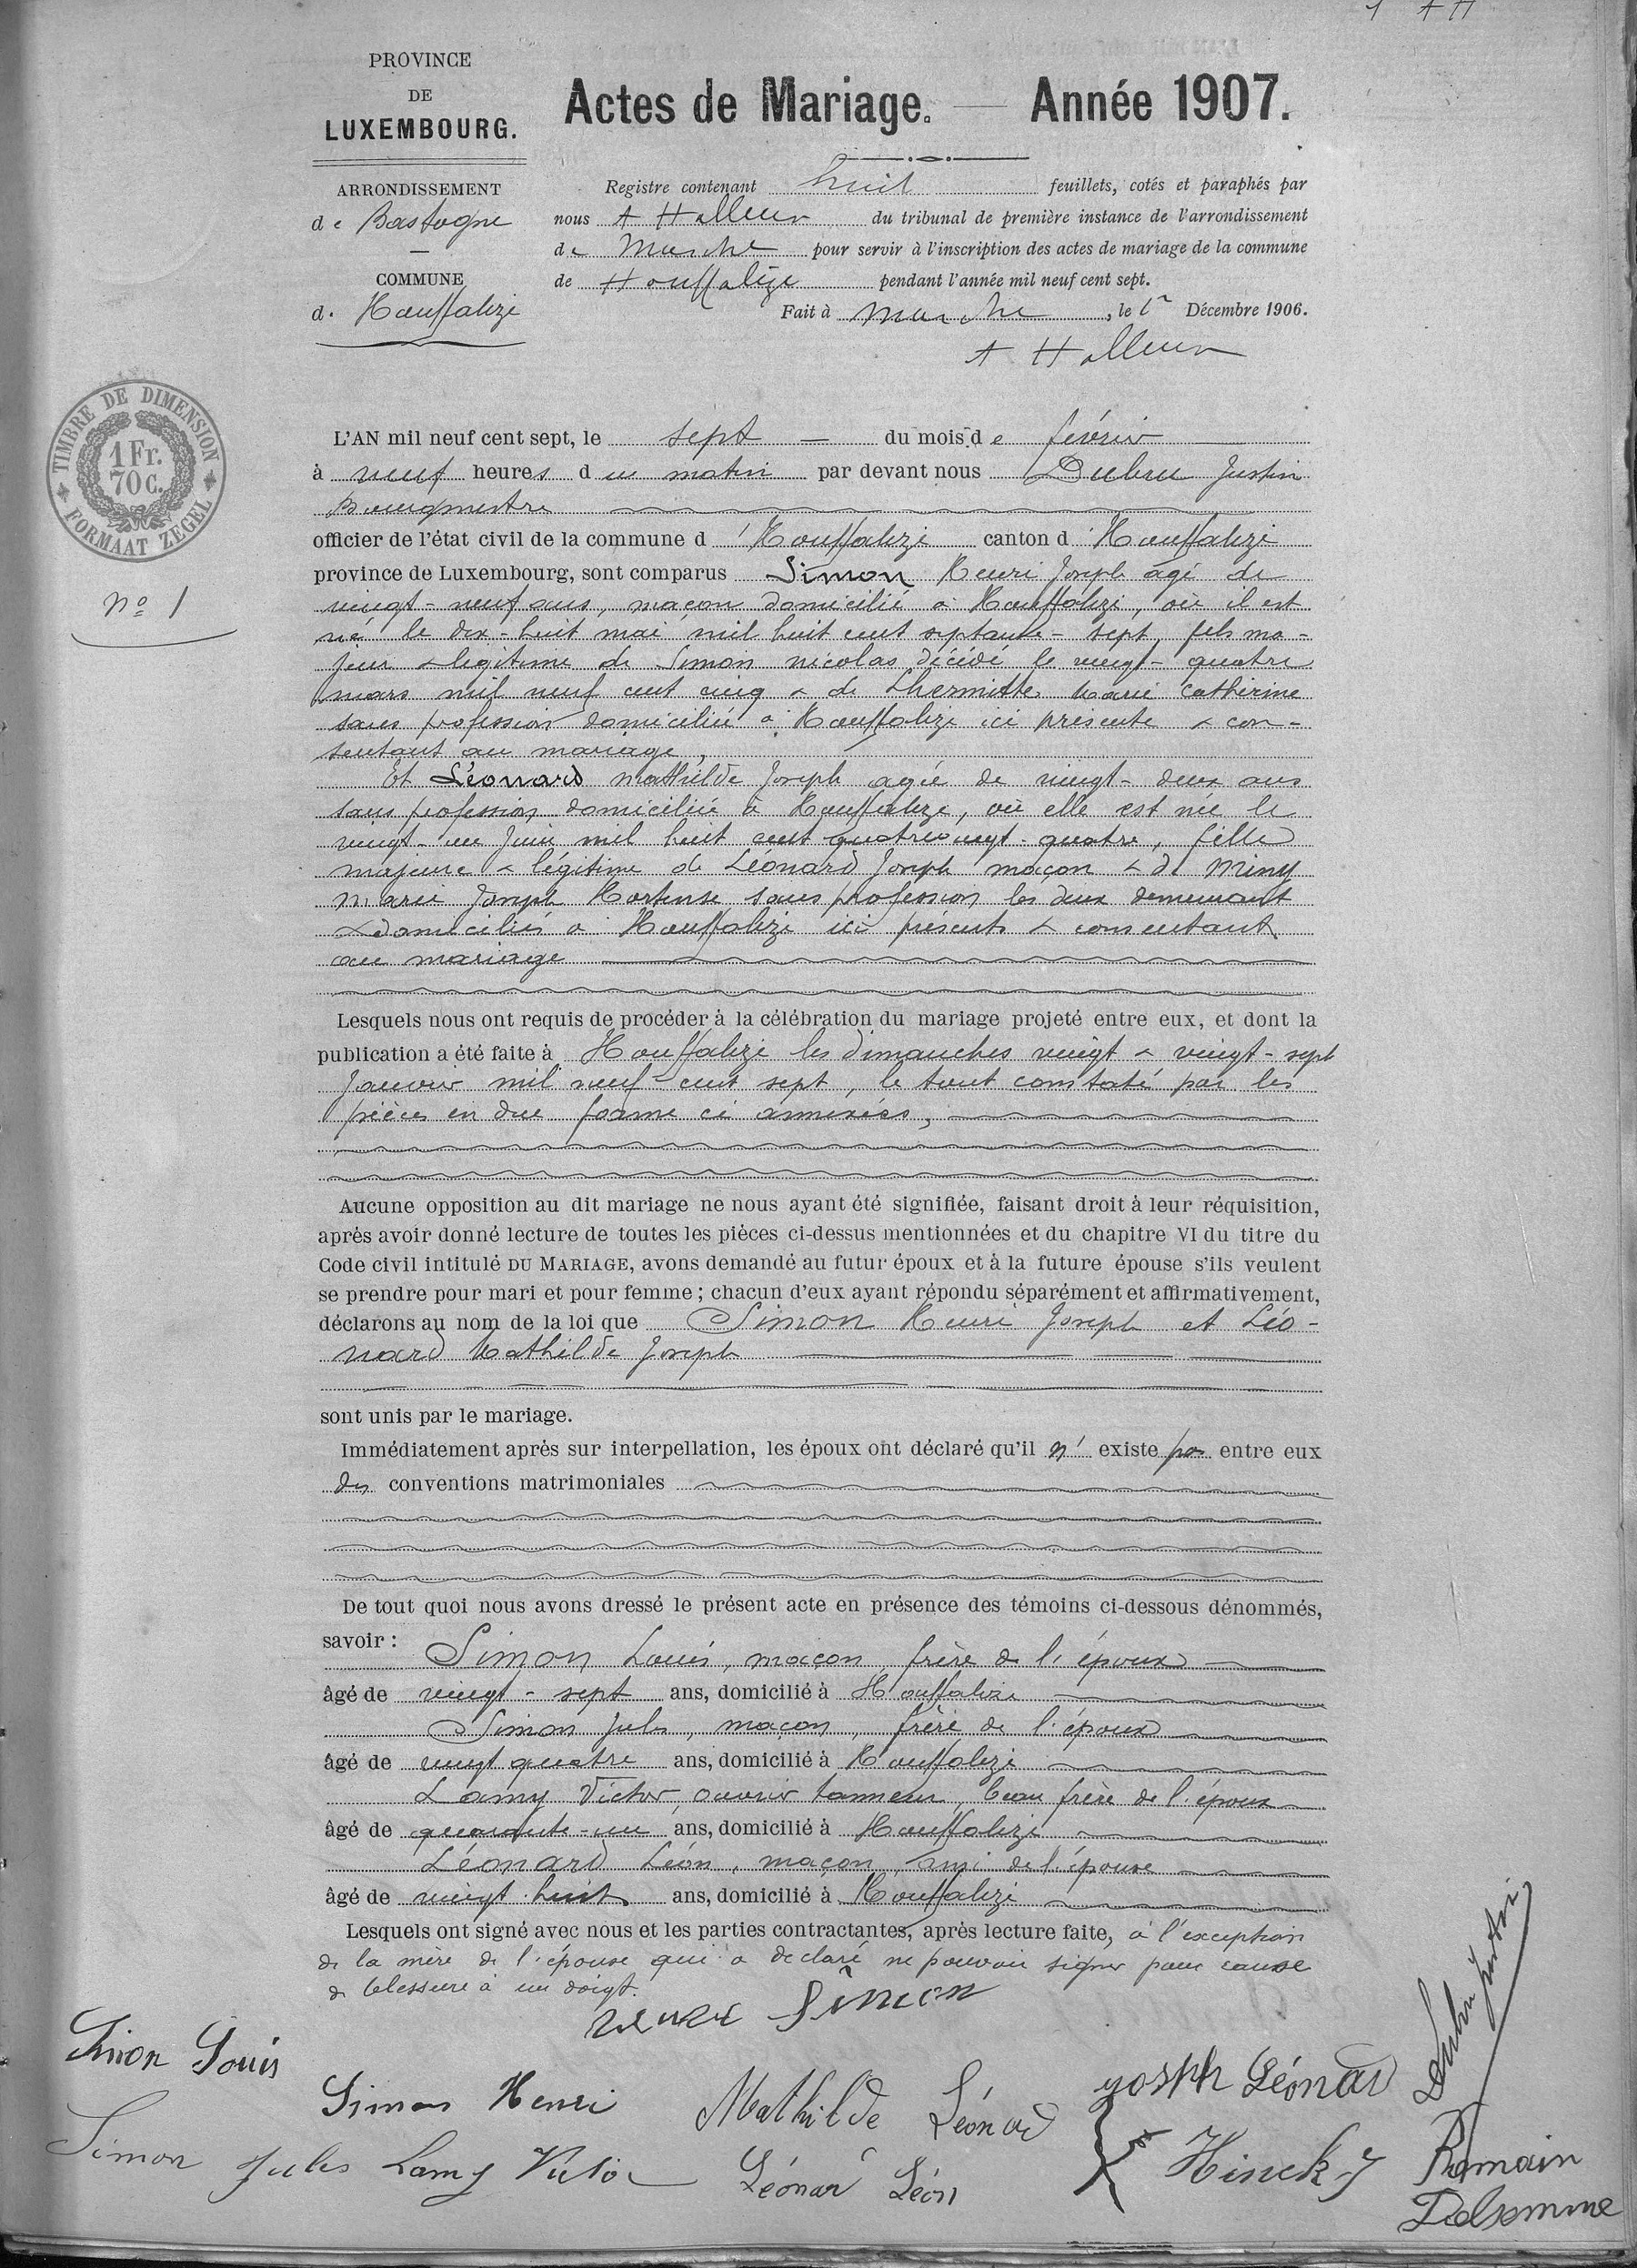 1 AH
PROVINCE
DE
LUXEMBOURG.
Actes de Mariage. — Année 1907.
ARRONDISSEMENT
de Bastogne
COMMUNE
d' Houffalize
Registre contenant huit feuillets, cotés et paraphés par
nous A Halleux du tribunal de première instance de l'arrondissement
de Marche pour servir à l'inscription des actes de mariage de la commune
de Houffalize pendant l'année mil neuf cent sept.
Fait à Marche, le Décembre 1906.
A Halleux
TIMBRE DE DIMENSION
1 Fr.
70 c.
FORMAAT ZEGEL
No 1
L'AN mil neuf cent sept, le sept — du mois de février
à neuf heures du matin par devant nous Dubru Justin
Bourgmestre
officier de l'état civil de la commune d'Houffalize canton d'Houffalize
province de Luxembourg, sont comparus Simon Henri Joseph âgé de
vingt-neuf ans, maçon domicilié à Houffalize, où il est
né le dix-huit mai mil huit cent septante-sept, fils ma-
jeur & légitime de Simon Nicolas décédé le vingt-quatre
mars mil neuf cent cinq & de Lhermitte Marie Catherine
sans profession domiciliée à Houffalize ici présente & con-
sentant au mariage,
Et Léonard Mathilde Joseph agée de vingt-deux ans
sans profession domiciliée à Houffalize, où elle est née le
vingt-un Juin mil huit cent quatrevingt-quatre, fille
majeure & légitime de Léonard Joseph maçon & de Miny
Marie Joseph Hortense sans profession les deux demeurant
& domiciliés à Houffalize ici présents & consentant
au mariage
Lesquels nous ont requis de procéder à la célébration du mariage projeté entre eux, et dont la
publication a été faite à Houffalize les dimanches vingt & vingt-sept
Janvier mil neuf cent sept, le tout constaté par les
pièces en due forme ci annexées,
Aucune opposition au dit mariage ne nous ayant été signifiée, faisant droit à leur réquisition,
après avoir donné lecture de toutes les pièces ci-dessus mentionnées et du chapitre VI du titre du
Code civil intitulé DU MARIAGE, avons demandé au futur époux et à la future épouse s'ils veulent
se prendre pour mari et pour femme ; chacun d'eux ayant répondu séparément et affirmativement,
déclarons au nom de la loi que Simon Henri Joseph et Léo-
nard Mathilde Joseph
sont unis par le mariage.
Immédiatement après sur interpellation, les époux ont déclaré qu'il n' existe pas entre eux
des conventions matrimoniales
De tout quoi nous avons dressé le présent acte en présence des témoins ci-dessous dénommés,
savoir :
Simon Louis, maçon, frère de l'époux
âgé de vingt-sept ans, domicilié à Houffalize
Simon Jules, maçon, frère de l'époux
âgé de vingt quatre ans, domicilié à Houffalize
Lamy Victor, ouvrier tanneur, beau frère de l'époux
âgé de quarante-un ans, domicilié à Houffalize
Léonard Léon, maçon, ami de l'épouse
âgé de vingt huit ans, domicilié à Houffalize
Lesquels ont signé avec nous et les parties contractantes, après lecture faite, à l'exception
de la mère de l'épouse qui a declaré ne pouvoir signer pour cause
de blessure à un doigt.
veuve Simon
Simon Louis
Simon Henri Mathilde Léonard joseph Léonard Dubru Justin
Simon Jules Lamy Victor Léonard Léon Hinck J Romain
Delsemme